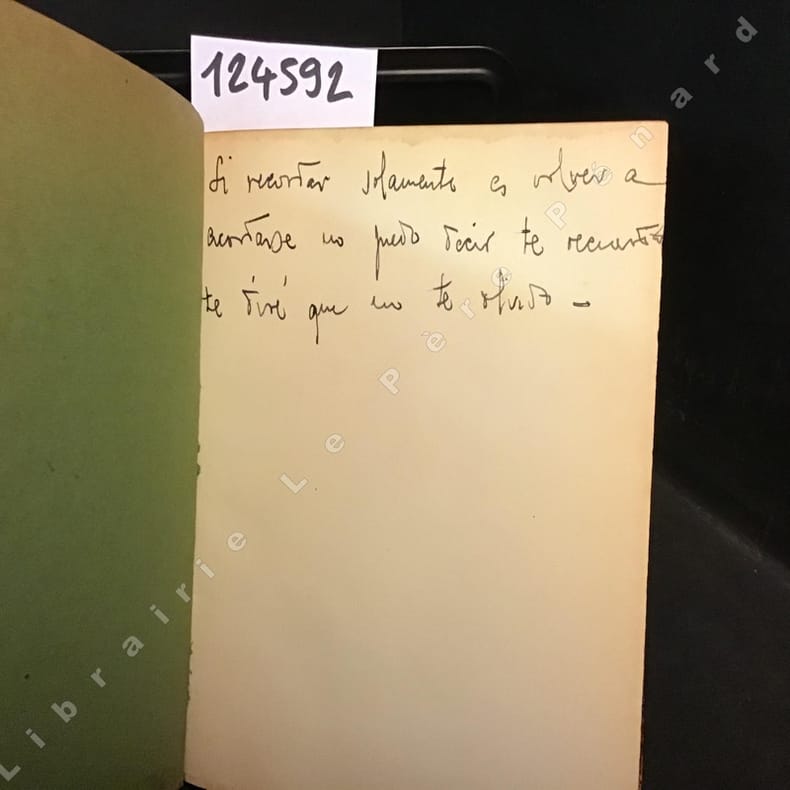 124592
Si recordar solamente es volver a
acordarse no puedo decir te recuerdo
te diré que no te olvido –
Librairie Le Père Pénard